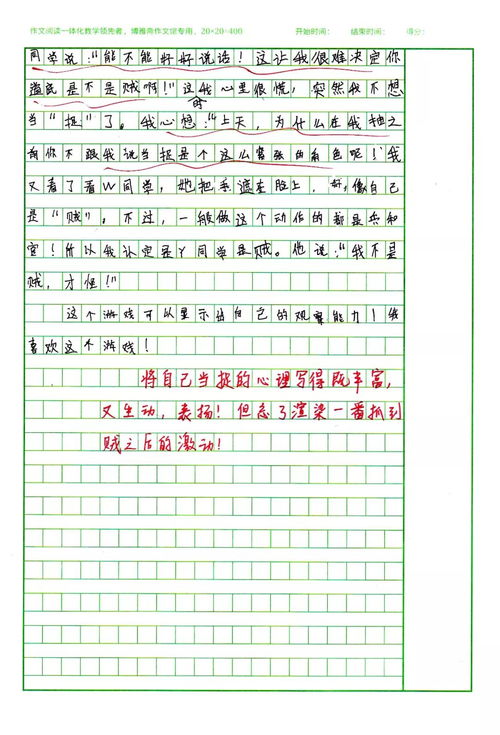 作文阅读一体化教学领先者，博雅斋作文馆专用，20×20=400 开始时间： 结束时间： 得分：
同学说："能不能好好说话！这让我很难决定你
是不是贼啊！"这时我心里很慌，突然我不想
当"捉"了。我心想："上天，为什么在我抽之
前你不跟我说当捉是个这么紧张的角色呢！"我
又看了看W同学，她把手遮在脸上，好像自己
是"贼"。不过，一般做这个动作的都是兵和
官！所以我认定是Y同学是贼。他说："我不是
贼，才怪！"
这个游戏可以显示出自己的观察能力！我
喜欢这个游戏！
将自己当捉的心理写得既丰富，
又生动，表扬！但忘了渲染一番抓到
贼之后的激动！